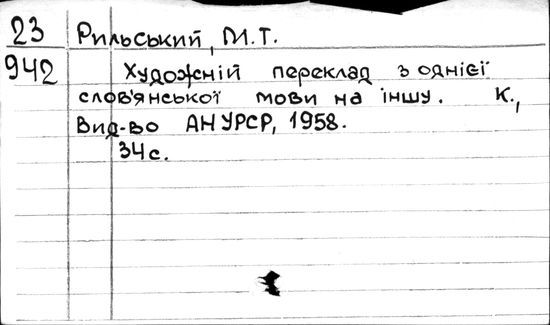 23 Рильський, М.Т.
942 Художній переклад з однієї
слов'янської мови на іншу. К.,
Вид-во АН УРСР, 1958.
34с.